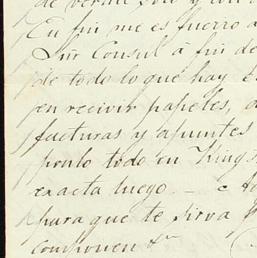 de verme solo y con
En fin me es fuerro a
Sñr Consul á fin de
de todo lo que hay
en recivir papeles,
facturas y apuntes
ponlo todo en Kings
exacta luego. —
para que te sirva
componen &ª